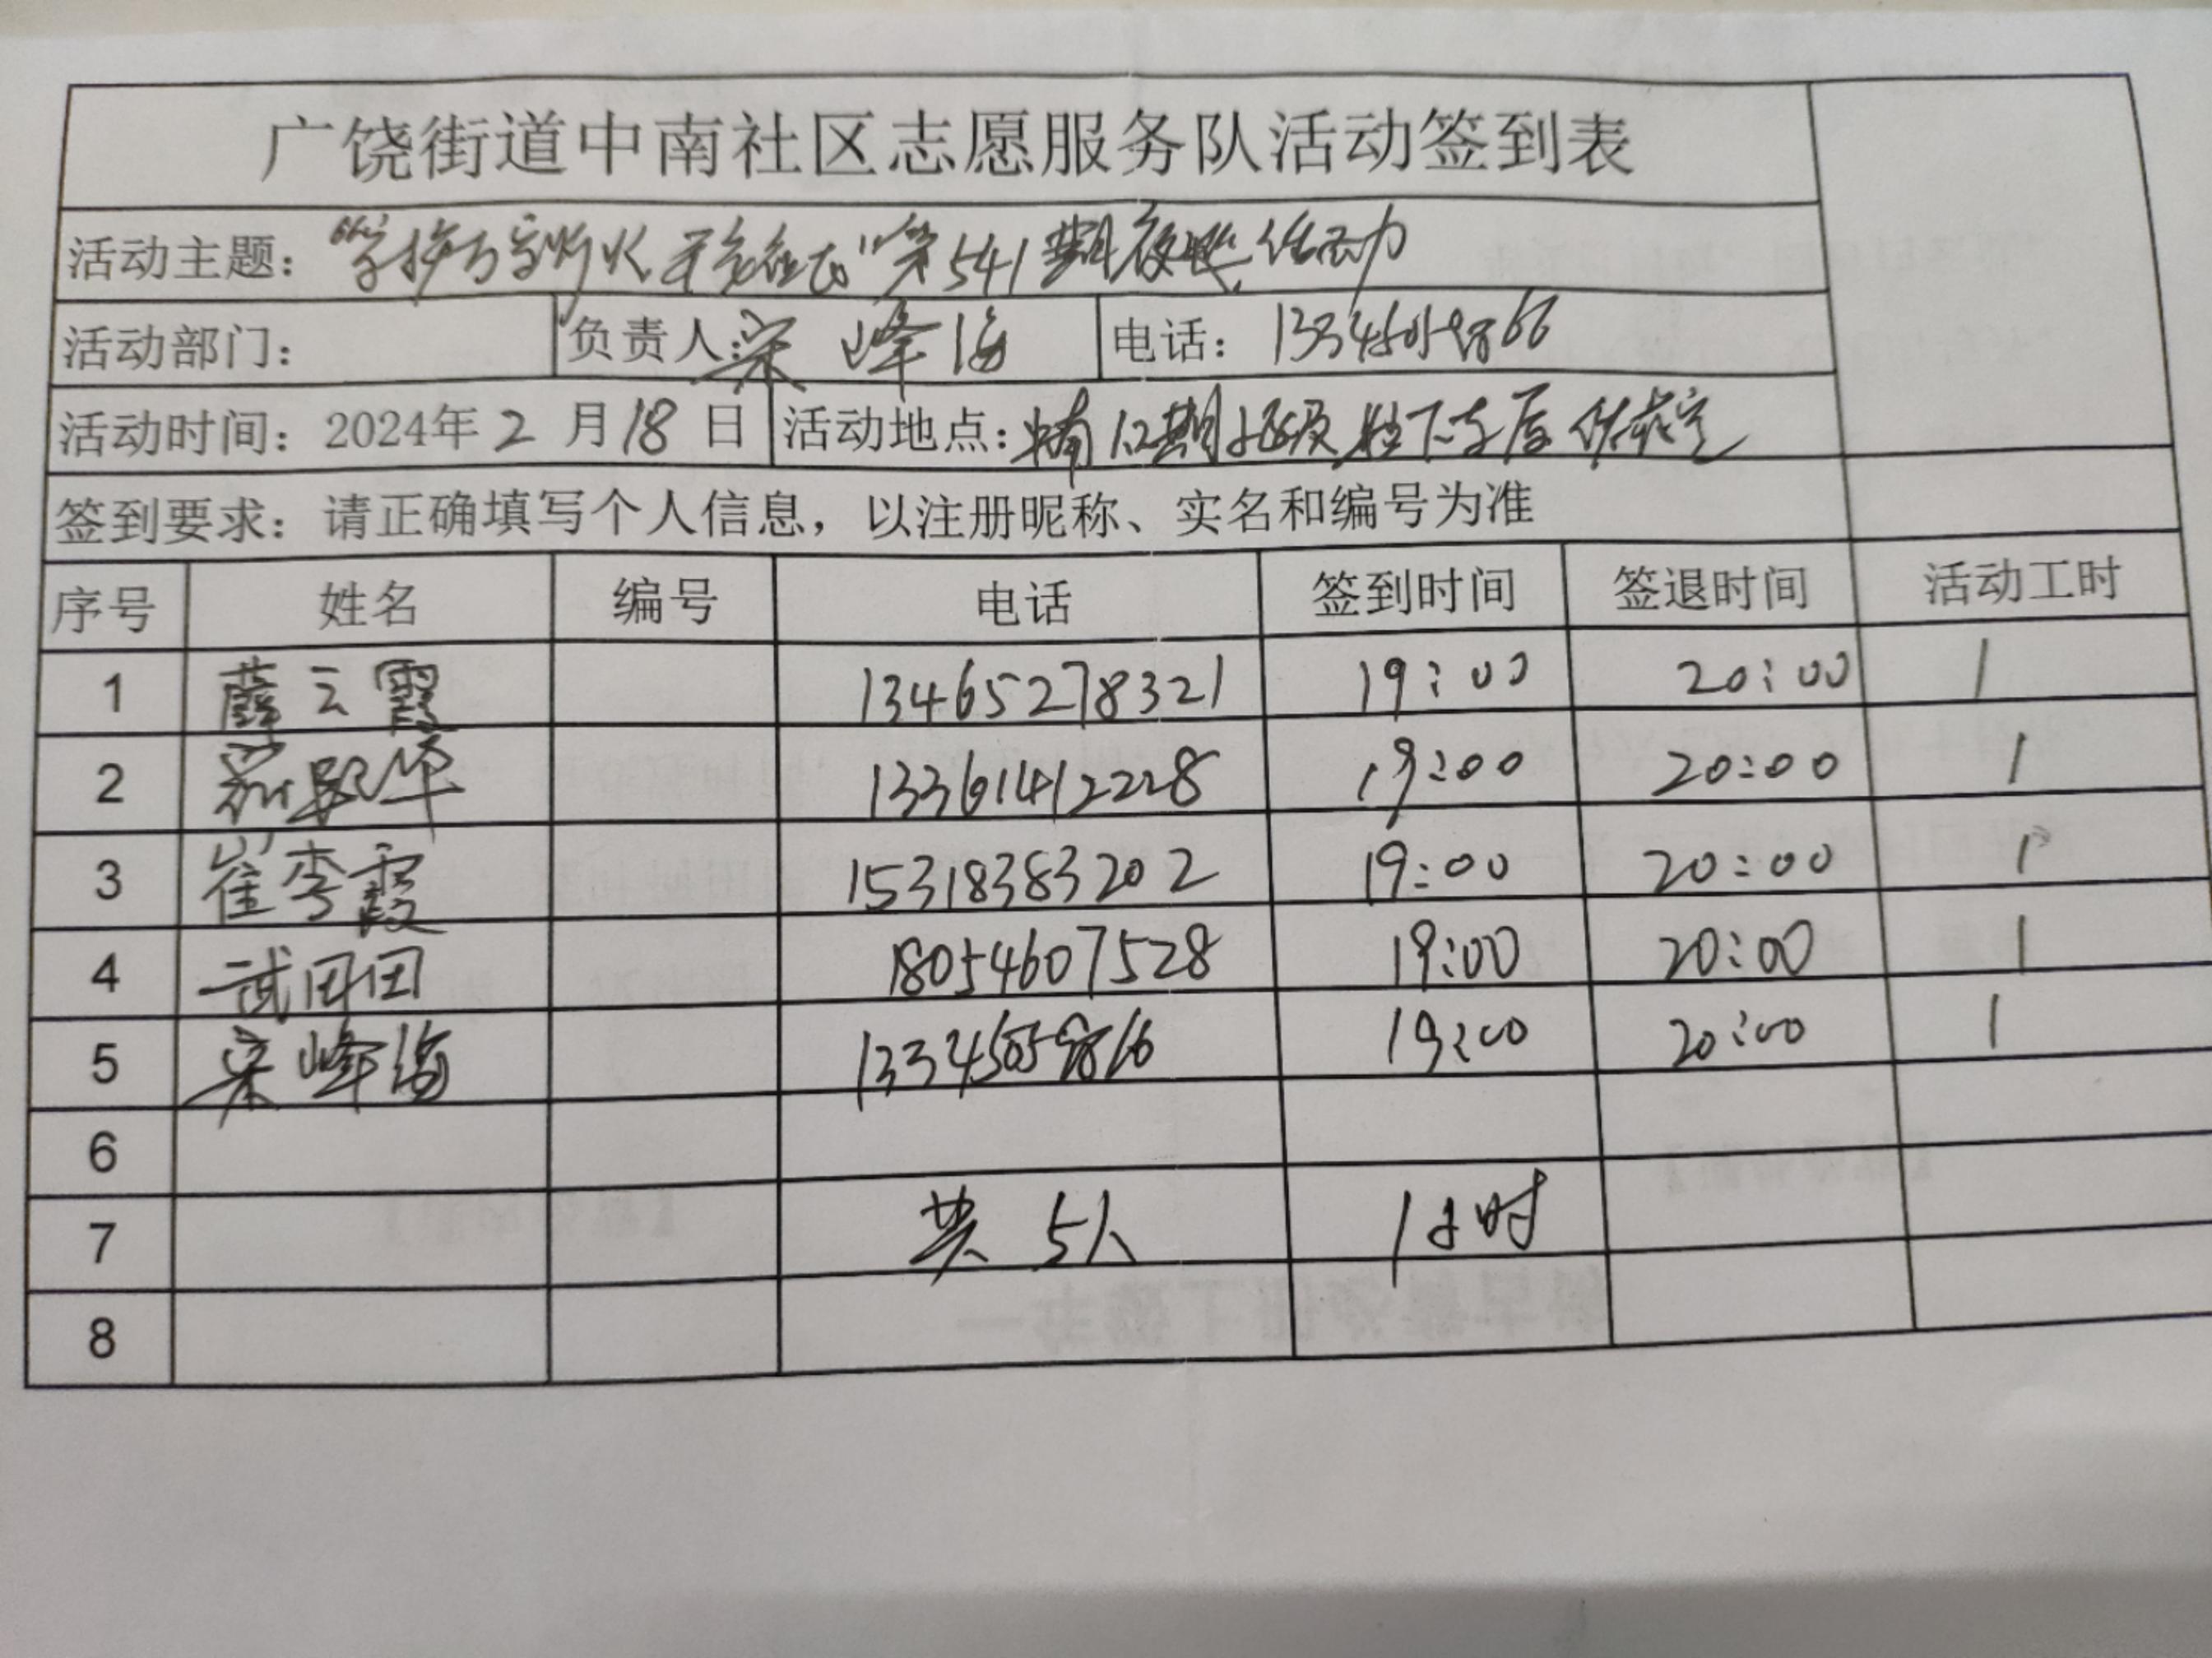 广饶街道中南社区志愿服务队活动签到表
活动主题：“守护万家灯火 第541期夜巡活动
活动部门： 负责人：宋峰海 电话：
活动时间：2024年2月18日 活动地点：中南1.2期 地下车库
签到要求：请正确填写个人信息，以注册昵称、实名和编号为准
序号 姓名 编号 电话 签到时间 签退时间 活动工时
1 薛云霞 13465278321 19:00 20:00 1
2 13361412228 19:00 20:00 1
3 崔李霞 15318383202 19:00 20:00 1
4 武田田 18054607528 19:00 20:00 1
5 宋峰海 19:00 20:00 1
6
7 共5人 1小时
8